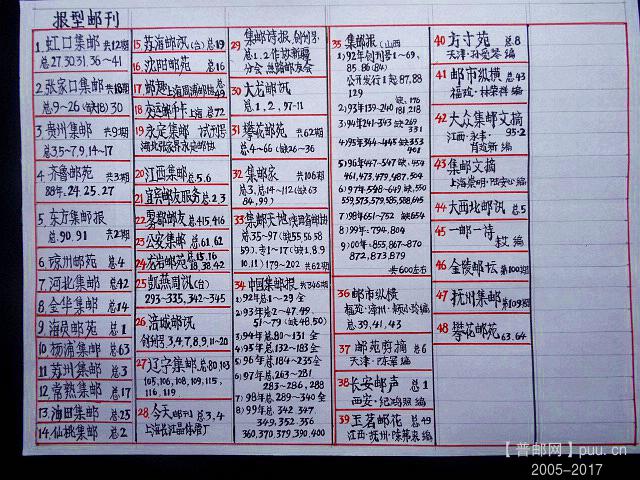 报型邮刊
1 虹口集邮 共12期
总27 30 31、36~41
2 张家口集邮 共18期
总9~26(缺18)30
3 贵州集邮 共9期
总35~7、9、14~17
4 齐鲁邮苑 共3期
88年、24、25、27
5 东方集邮报
总、90、91 共2期
6 琼州邮苑 总4
7 河北集邮 总42
8 金华集邮 总14
9 海员邮苑 总1
10 杨浦集邮 总63
11 苏州集邮 总3
12 常熟集邮 总17
13 海田集邮 总25
14 仙桃集邮 总2
15 苏海邮讯(台)总19
16 沈阳邮苑 总16
17 邮趣
18 交运邮币卡 上海 总72
19 永定集邮 试刊号
20 江西集邮 总5、6
21 宜宾邮友 总2、3
22 雾都邮友 总415、416
23 公安集邮 总61、62
24 龙岩邮苑 总15、16
18、38、42
25 凯燕周讯(台)
293~335、342~345
26 涪城邮讯
创刊号3、4、7、8、9、11~20
27 辽宁集邮 总80、103
105、106、108、109、115、
116、119
28 今天邮刊 总3、4
上海长江晶体管厂
29 集邮诗报、创刊号、
总1、2
分会
30 大龙邮讯
总1、2、97~11
31 攀花邮苑 共62期
总4~66(缺26~36
32 集邮家 共106期
总3、总14~112(缺63
84、99)
33 集邮天地
总35~97(缺55 56 58
59)、专1~17(缺1、8、9
10、11)179~202 共62期
34 中国集邮报 共346期
1)92年总1~29全
2)93年总2~47、49、
51~79(缺48、50)
3)94年总80~131全
4)95年总、132~183全
5)96年总184~235全
6)97年总、263~281
283~286、288
7)98年总、289~340全
8)99年总342 347
349、352、356
360、370、379、390、400
35 集邮报(山西
1)92年创刊号1~69、
85、86(84)
公开发行1起87、88
129
2)93年139~240 缺、176
181、218
3)94年241~343 缺269
331
4)95年344~445 缺353
5)96年447~547缺、454
461、473、479、487、504
6)97年548~649缺、550
559、573、579、585、588、645
7)98年651~752缺654
8)99年:794、804
9)00年:855、867~870
872、873、879
共600左右
36 邮市纵横
总、39、41、43
37 邮苑剪摘 总6
天津·陈军 编
38 长安邮声 总1
西安·纪鸿照 编
39 玉茗邮花 总49
江西·抚州·陈荣泉 编
40 方寸苑 总8
天津·孙爱琴 编
41 邮市纵横 总43
福琉·林荣祥 编
42 大众集邮文摘
江西·永丰· 95·2
肖远新 编
43 集邮文摘
上海崇明·陆安心编
44 大西北邮讯 总5
45 一邮一诗
46 金陵邮坛 第100期
47 抚州集邮 第109期
48 攀花邮苑 63、64
【普邮网】puu.cn
2005-2017